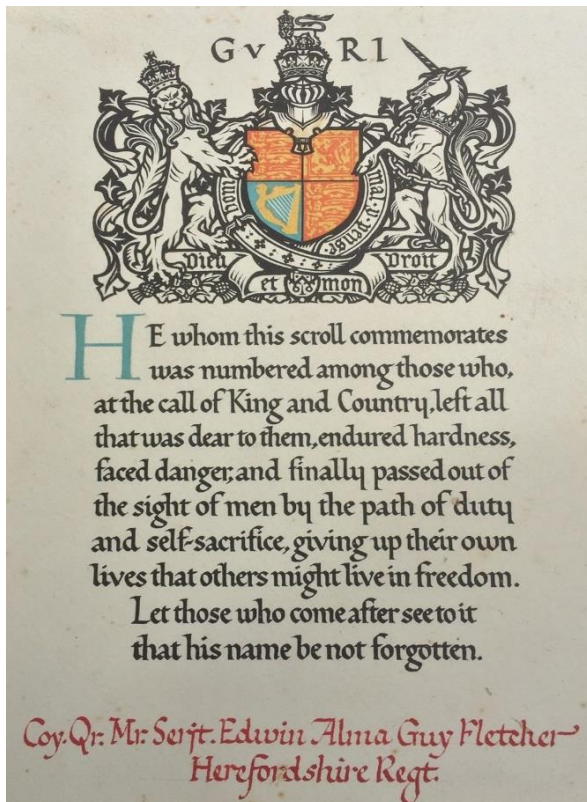 G V R I
Honi
mal y pense
Dieu
Droit
et
mon
HE whom this scroll commemorates
was numbered among those who,
at the call of King and Country, left all
that was dear to them, endured hardness,
faced danger, and finally passed out of
the sight of men by the path of duty
and self-sacrifice, giving up their own
lives that others might live in freedom.
Let those who come after see to it
that his name be not forgotten.
Coy. Qr. Mr. Serjt. Edwin Alma Guy Fletcher
Herefordshire Regt.